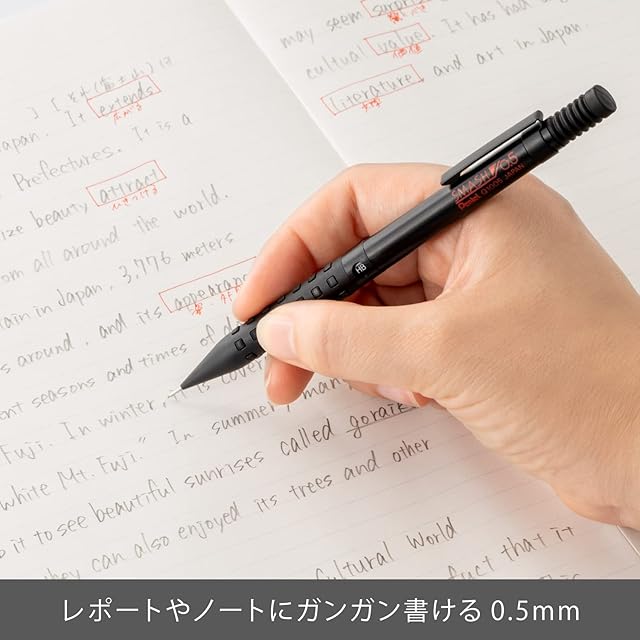 may seem surprise
cultual value. It has had
literature and art in Japan.
Japan. It extends
Prefectures. It is a
ize beauty attract
om all around the world.
ain in Japan, 3,776 meters
s around, and its appearance
ent seasons and times of
Fuji. In winter, it is cover
white Mt. Fuji." In summer, many
o it to see beautiful sunrises called goraik
hey can also enjoyed its trees and other
Cultural World
fact that it
SMASH 0.5
Pentel Q1005 JAPAN
HB
レポートやノートにガンガン書ける 0.5mm